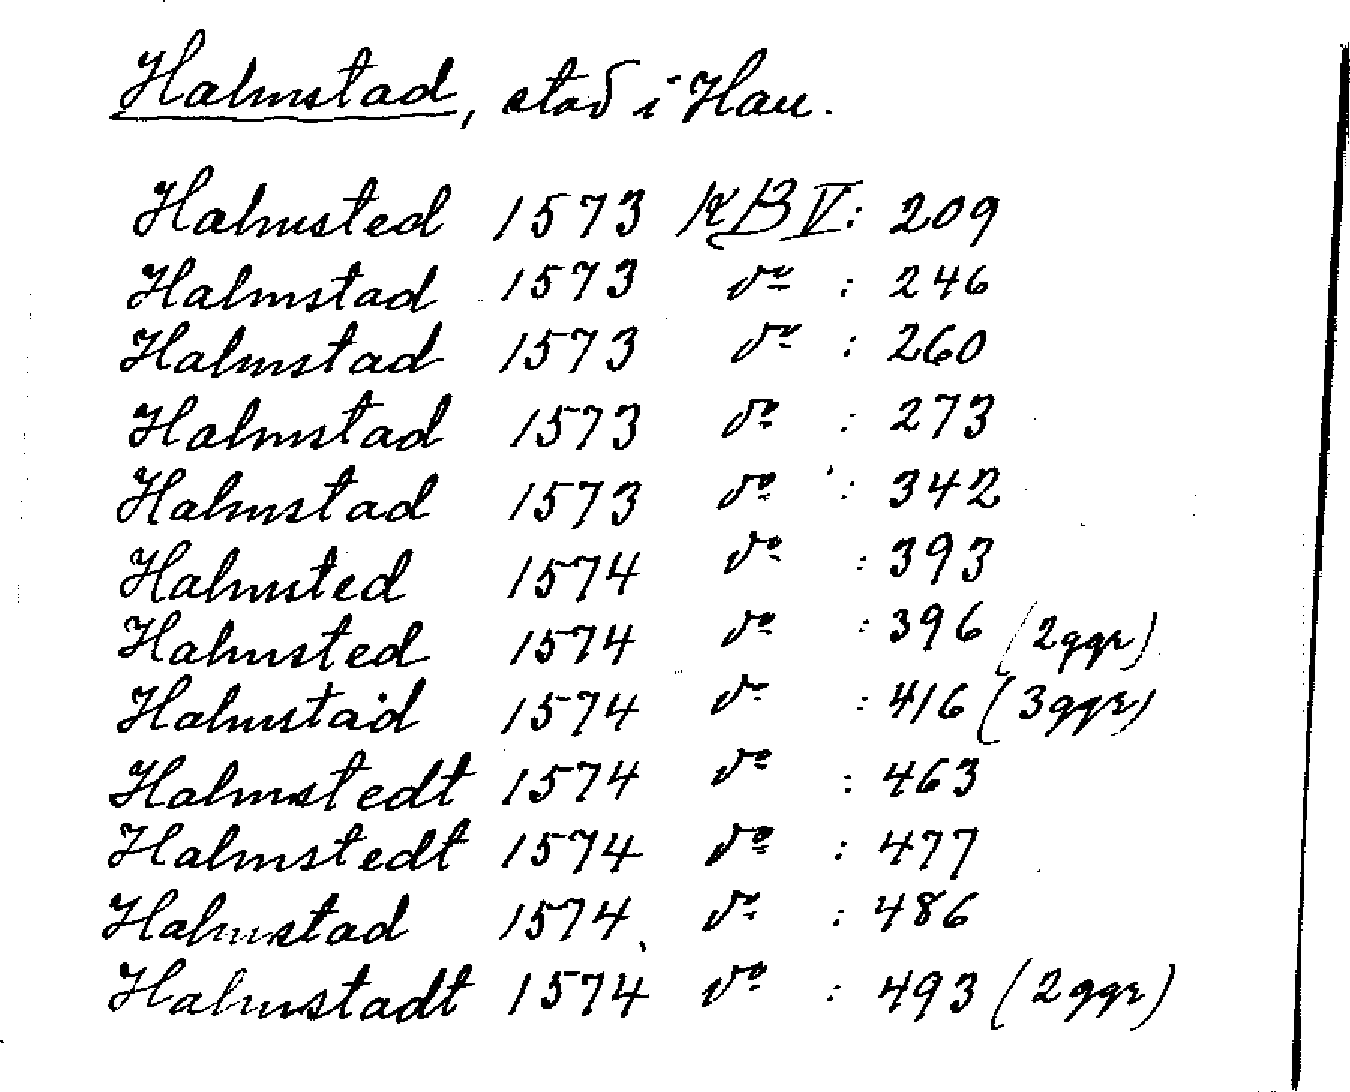 Halmstad, stad i Hall.
Halmsted 1573 KB V: 209
Halmstad 1573 do : 246
Halmstad 1573 do : 260
Halmstad 1573 do : 273
Halmstad 1573 do : 342
Halmsted 1574 do : 393
Halmsted 1574 do : 396 (2ggr)
Halmstad 1574 do : 416 (3ggr)
Halmstedt 1574 do : 463
Halmstedt 1574 do : 477
Halmstad 1574 do : 486
Halmstadt 1574 do : 493 (2ggr)